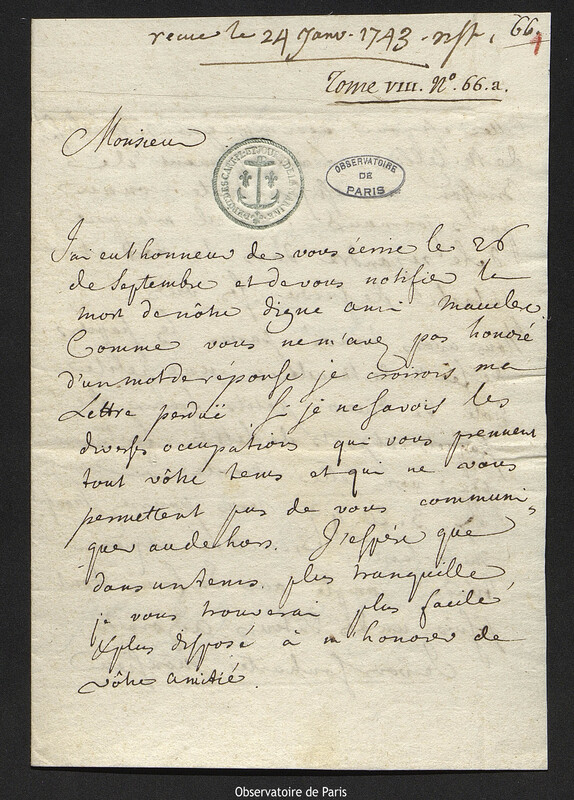 recue le 24 Janv. 1743. nst. 66.
Tome VIII. N.º 66.a.
Monsieur
DEPOT DES CARTES ET PLANS DE LA MARINE
OBSERVATOIRE
DE
PARIS
J'ai eut honneur de vous écrire le 26
de Septembre et de vous notifier la
mort de nôtre digne ami Mauclerc.
Comme vous ne m'avez pas honoré
d'un mot de réponse je croirois ma
Lettre perduë Si je ne Savois les
diverses occupations qui vous prennent
tout vôtre tems et qui ne vous
permettent pas de vous communi=
quer au dehors. J'espére que
dans un tems plus tranquille
je vous trouverai plus facile,
& plus disposé à m'honorer de
vôtre amitié.
Observatoire de Paris